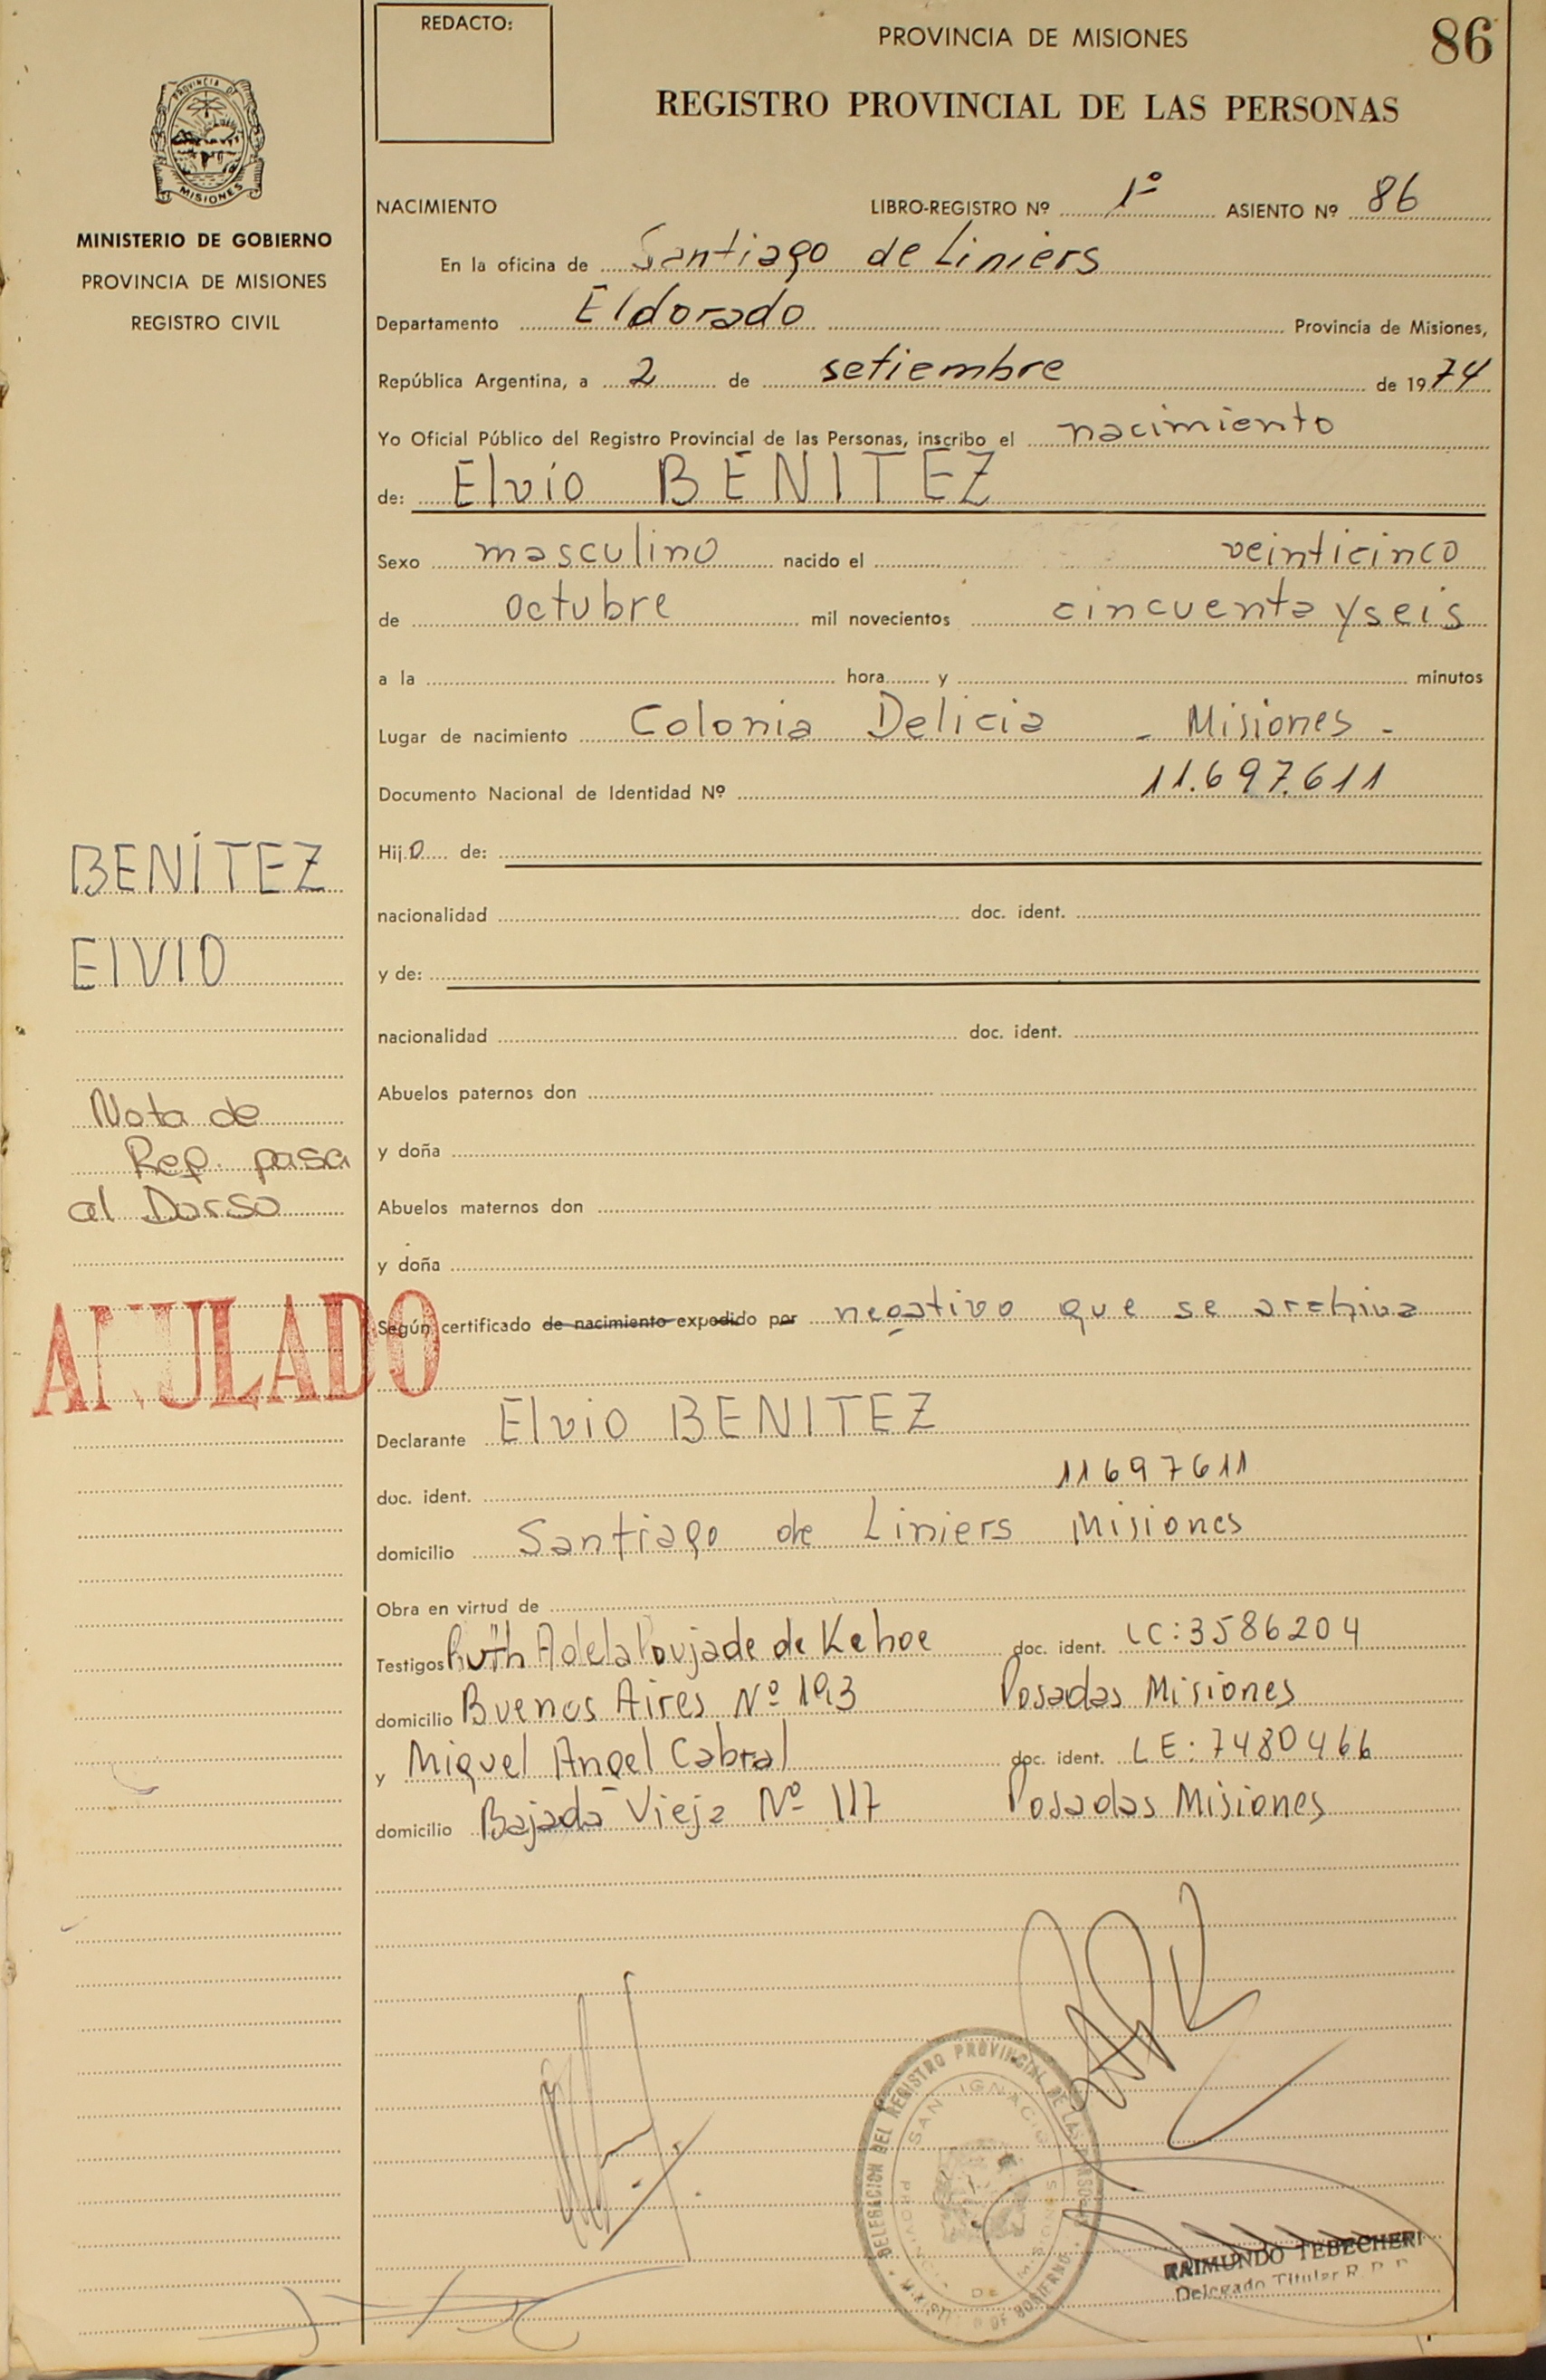 REDACTO:
PROVINCIA DE MISIONES
86
REGISTRO PROVINCIAL DE LAS PERSONAS
PROVINCIA DE
MISIONES
MINISTERIO DE GOBIERNO
PROVINCIA DE MISIONES
REGISTRO CIVIL
NACIMIENTO LIBRO-REGISTRO Nº 1º ASIENTO Nº 86
En la oficina de Santiago de Liniers
Departamento Eldorado Provincia de Misiones,
República Argentina, a 2 de setiembre de 1974
Yo Oficial Público del Registro Provincial de las Personas, inscribo el nacimiento
de: Elvio BENITEZ
Sexo masculino nacido el veinticinco
de octubre mil novecientos cincuenta y seis
a la hora y minutos
Lugar de nacimiento Colonia Delicia - Misiones -
Documento Nacional de Identidad Nº 11.697.611
BENITEZ
Hijo de:
nacionalidad doc. ident.
ElVIO
y de:
nacionalidad doc. ident.
Abuelos paternos don
Nota de
Ref. pasa
al Dorso
y doña
Abuelos maternos don
y doña
ANULADO
Según certificado de nacimiento expedido por negativo que se archiva
Declarante Elvio BENITEZ
doc. ident. 11697611
domicilio Santiago de Liniers Misiones
Obra en virtud de
Testigos Ruth Adela Poujade de Kehoe doc. ident. LC: 3586204
domicilio Buenos Aires Nº 193 Posadas Misiones
y Miguel Angel Cabral doc. ident. LE: 7480466
domicilio Bajada Vieja Nº 117 Posadas Misiones
DELEGACION DEL REGISTRO PROVINCIAL DE LAS PERSONAS
SAN IGNACIO
PROVINCIA DE MISIONES
MINISTERIO DE GOBIERNO
RAIMUNDO TEBECHERI
Delegado Titular R. P. P.